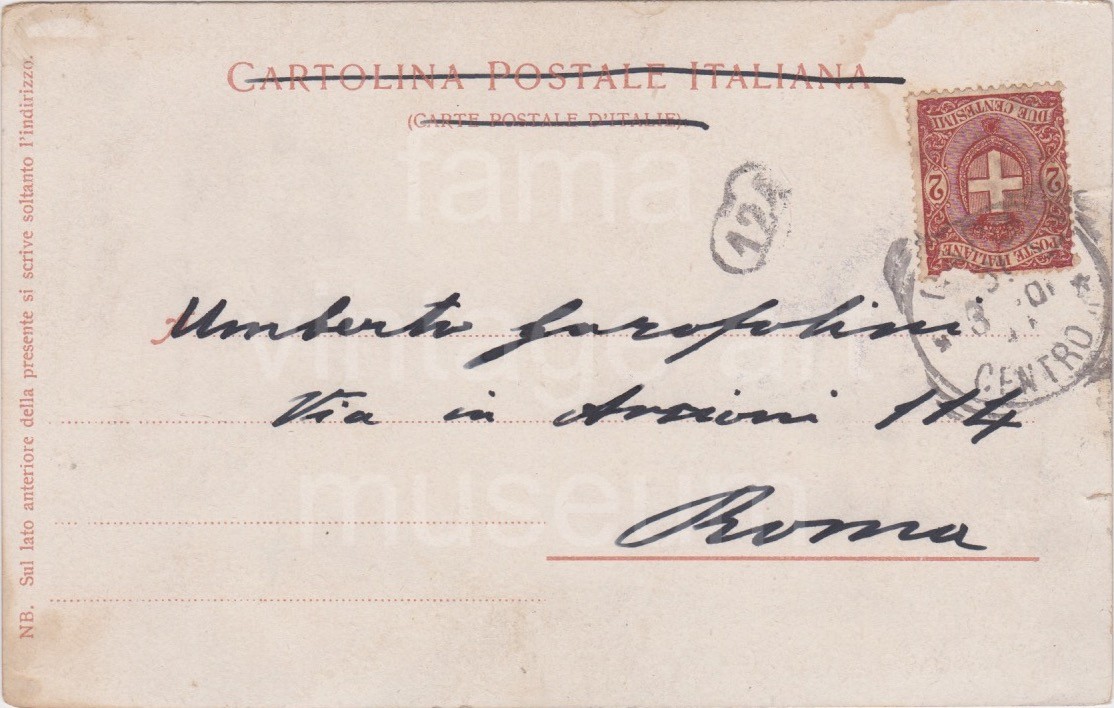 CARTOLINA POSTALE ITALIANA
(CARTE POSTALE D'ITALIE)
NB. Sul lato anteriore della presente si scrive soltanto l'indirizzo.
DUE CENTESIMI
2 2
POSTE ITALIANE
12
CENTRO
Umberto Garofolini
Via in Arcioni 114
Roma
fama
vintage art
museum